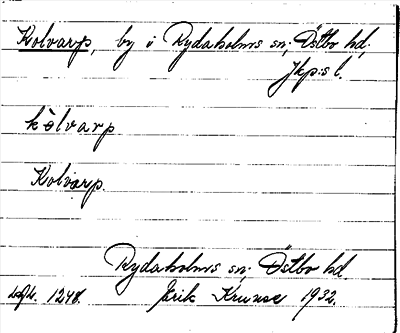 Kolvarp, by i Rydaholms sn; Östbo hd,
Jkp:s l.
kòlvarp
Kolvarp.
Rydaholms sn; Östbo hd
1248. Erik Kruuse 1932.